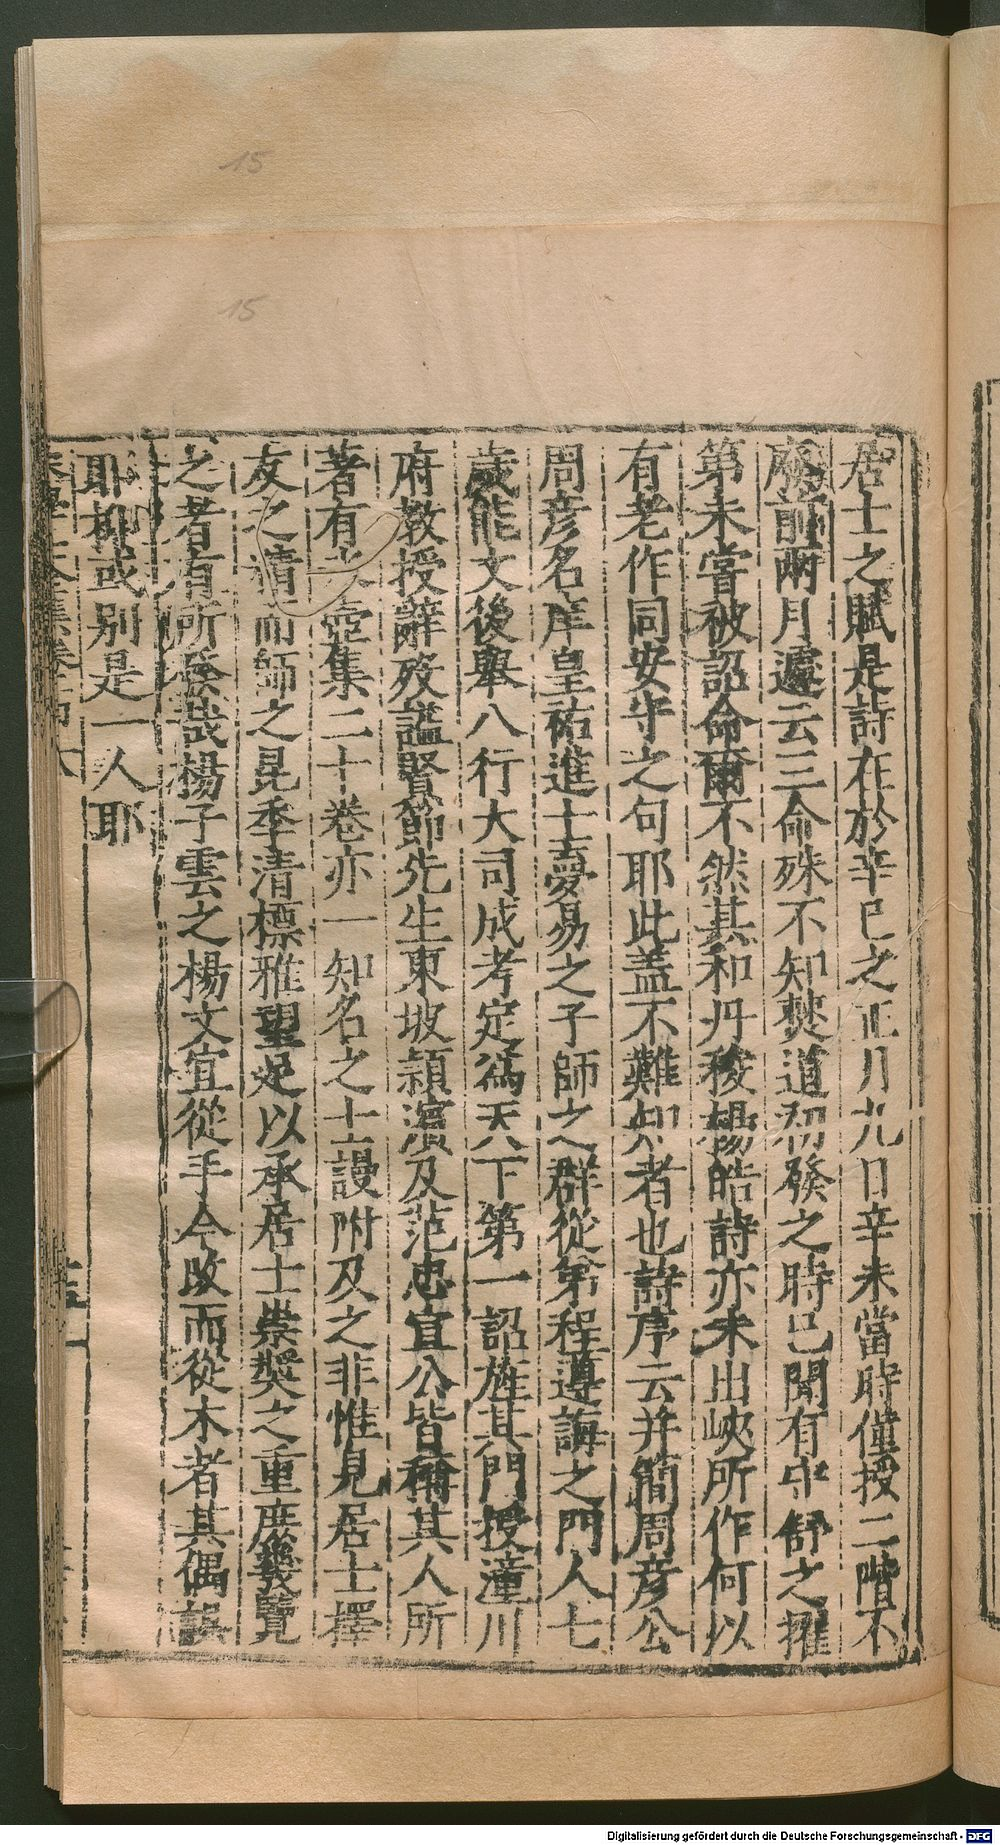 居士之賦是詩在於辛巳之正月九日辛未當時僅授二階不
前兩月遽云三命殊不知僰道初發之時已聞有守舒之擢
第未嘗被詔命爾不然其和丹稜楊皓詩亦未出峽所作何以
有老作同安守之句耶此盖不難知者也詩序云并簡周彦公
周彦名庠皇祐進士憂易之子師之群從弟程遵誨之門人七
歲能文後舉八行大司成考定為天下第一詔旌其門授潼川
府教授辭歿謚賢節先生東坡潁濱及范忠宣公皆稱其人所
著有 壺集二十卷亦一知名之士謾附及之非惟見居士擇
友之精而師之昆季清標雅望足以承居士崇奬之重庶㡬覽
之者有所 哉楊子雲之楊文宜從手今改而從木者其偶誤
耶抑或别是一人耶
15
15
Digitalisierung gefördert durch die Deutsche Forschungsgemeinschaft - DFG